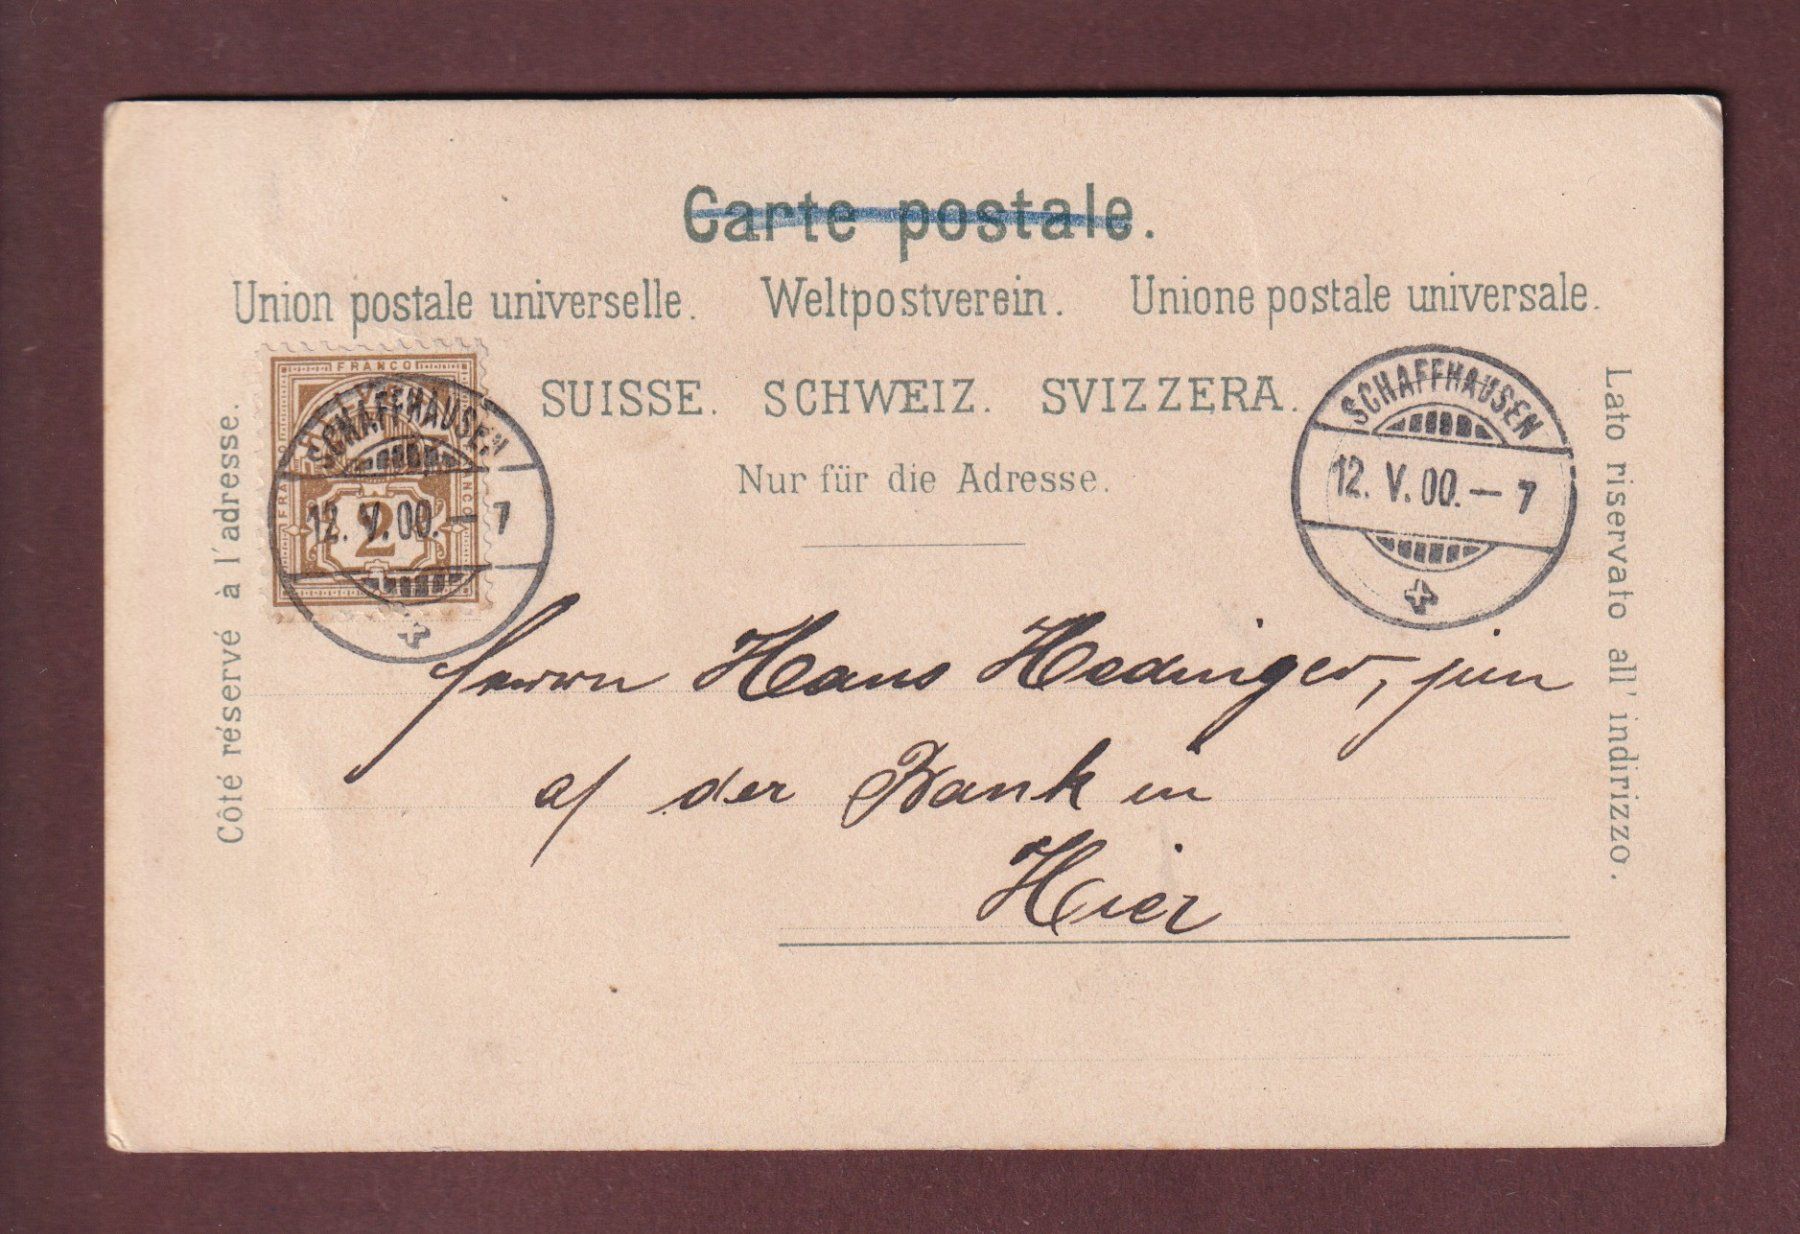 Carte postale.
Union postale universelle. Weltpostverein. Unione postale universale.
SUISSE. SCHWEIZ. SVIZZERA.
Nur für die Adresse.
Côté réservé à l'adresse.
Lato riservato all' indirizzo.
FRANCO
FRANCO
2
SCHAFFHAUSEN
12. V. 00. — 7
SCHAFFHAUSEN
12. V. 00. — 7
Herrn Hans Hedinger, jun
a/ der Bank in
Hier